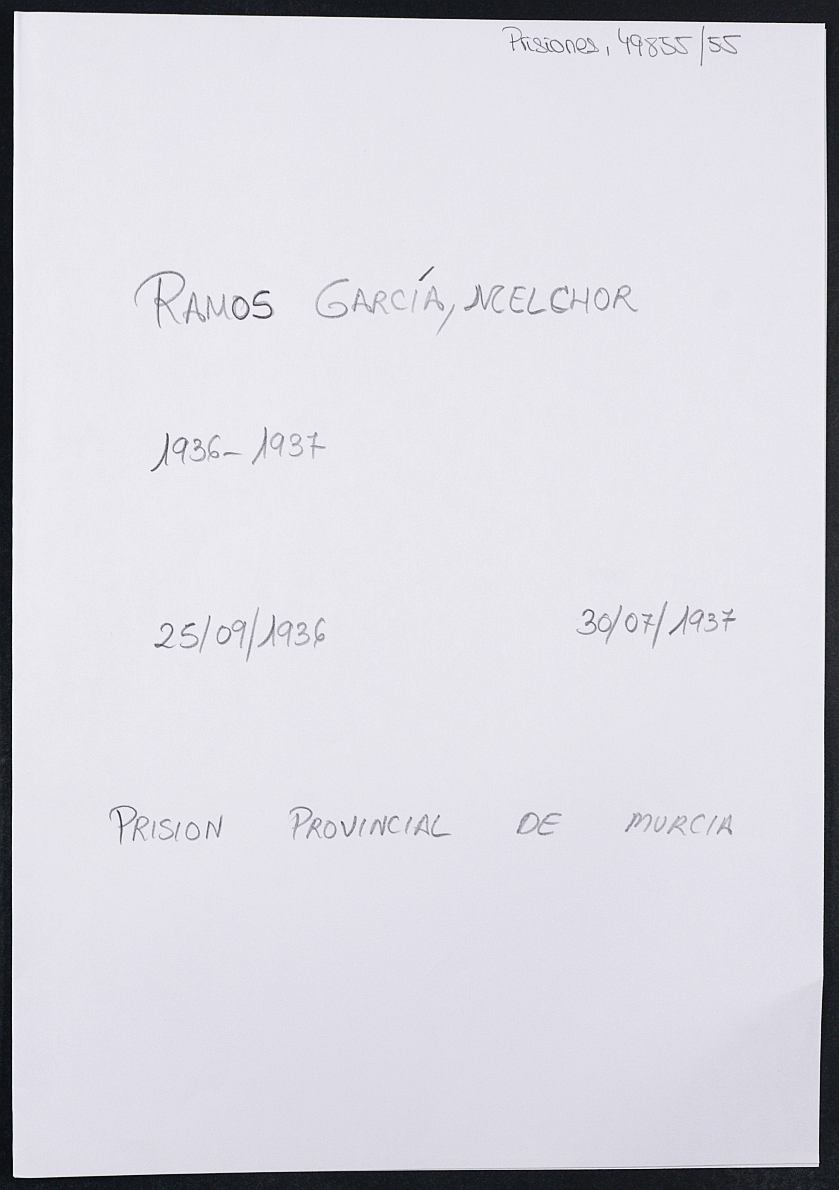 Prisiones, 49855/55
RAMOS GARCÍA, MELCHOR
1936-1937
25/09/1936 30/07/1937
PRISION PROVINCIAL DE MURCIA